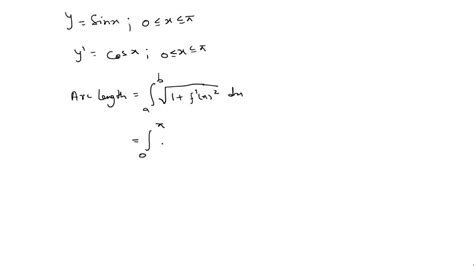 y = Sinx ; 0 ≤ x ≤ π
y' = Cosx ; 0 ≤ x ≤ π
Arc length = ∫_a^b √(1 + f'(x)²) dx
= ∫_0^π